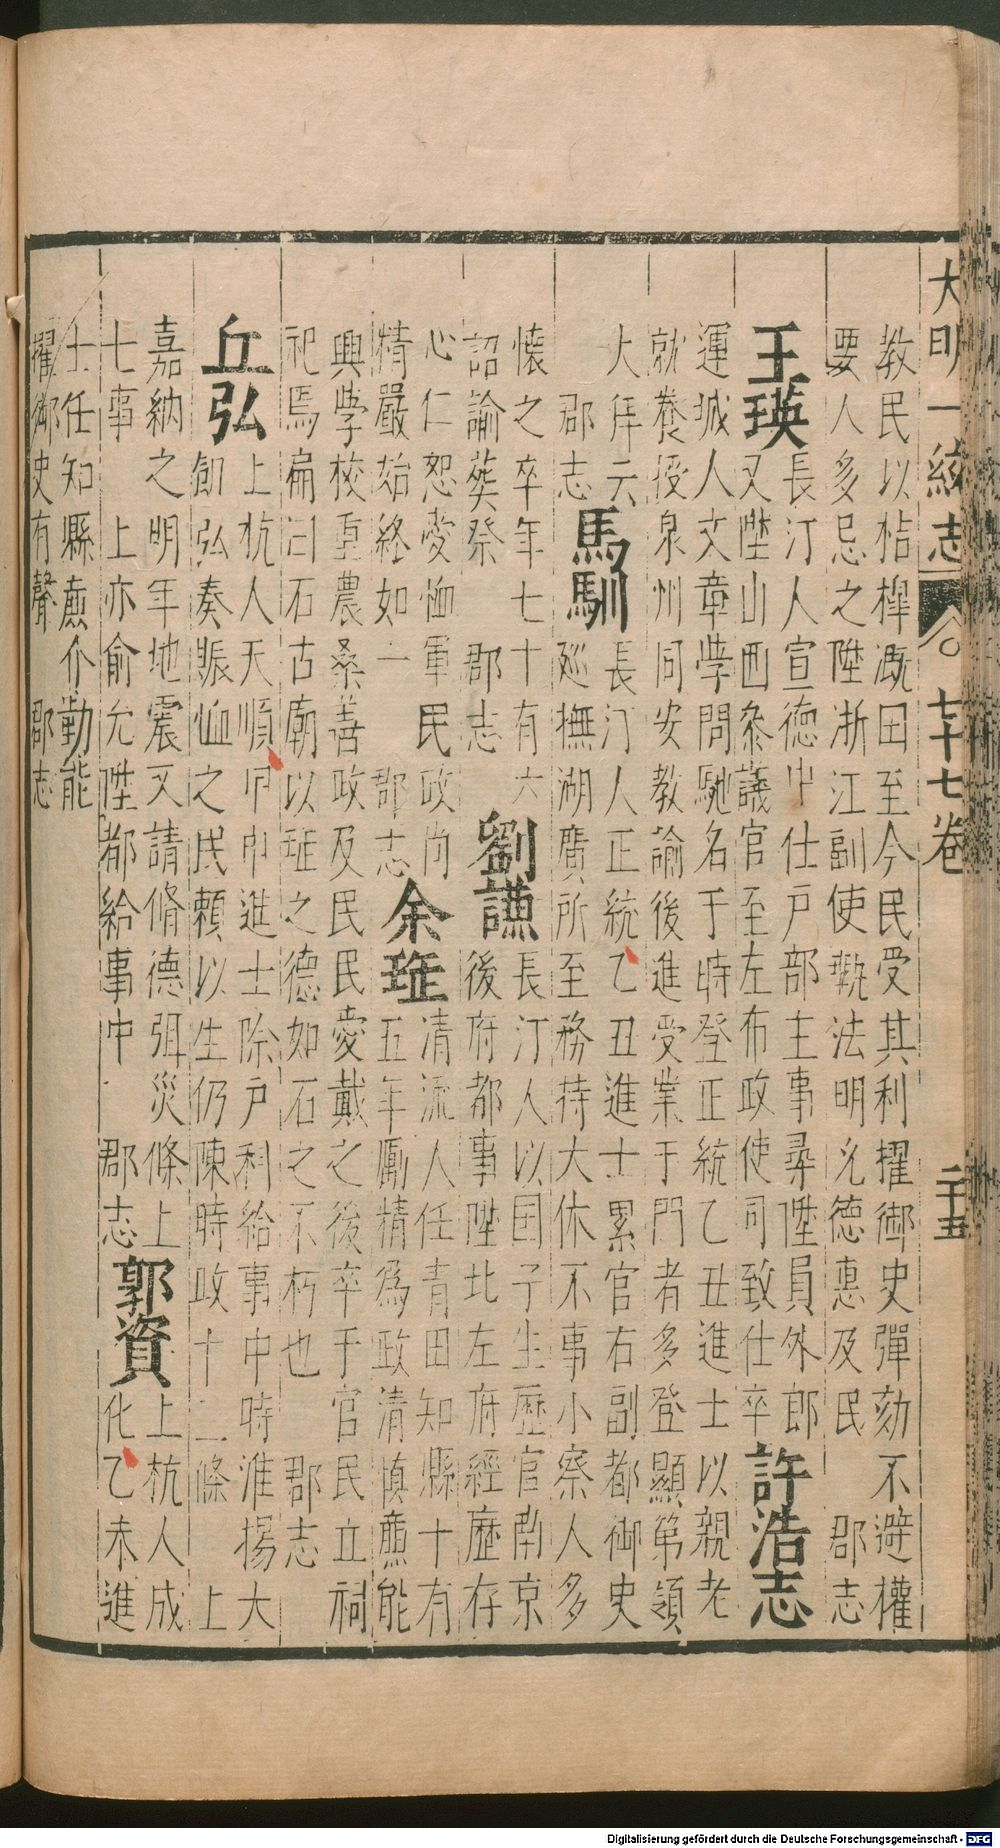 大明一統志 七十七卷 二十五
教民以桔橰漑田至今民受其利擢御史彈劾不避權
要人多忌之陞浙江副使執法明允德惠及民 郡志
王瑛 長汀人宣德中仕戶部主事尋陞員外郎
又陞山西叅議官至左布政使司致仕卒
許浩志
運城人文章學問馳名于時登正統乙丑進士以親老
就養授泉州同安教諭後進受業于門者多登顯第領
大拜云
郡志
馬馴 長汀人正統乙丑進士累官右副都御史
廵撫湖廣所至務持大体不事小察人多
懷之卒年七十有六
詔諭葬祭 郡志
劉謙 長汀人以囯子生歴官南京
後府都事陞北左府經歴存
心仁恕愛恤軍民政尚
精嚴始終如一 郡志
余㻏 清流人任青田知縣十有
五年勵精為政清慎廉能
興學校重農桑善政及民民愛戴之後卒于官民立祠
祀焉扁曰石古廟以㻏之德如石之不朽也 郡志
丘弘 上杭人天順 進士除戶科給事中時淮揚大
弘奏賑恤之民頼以生仍陳時政十二條 上
嘉納之明年地震又請脩德弭災條上
七事 上亦俞允陞都給事中 郡志
郭資 上杭人成
化乙未進
士任知縣亷介勤能
擢御史有聲 郡志
Digitalisierung gefördert durch die Deutsche Forschungsgemeinschaft - DFG